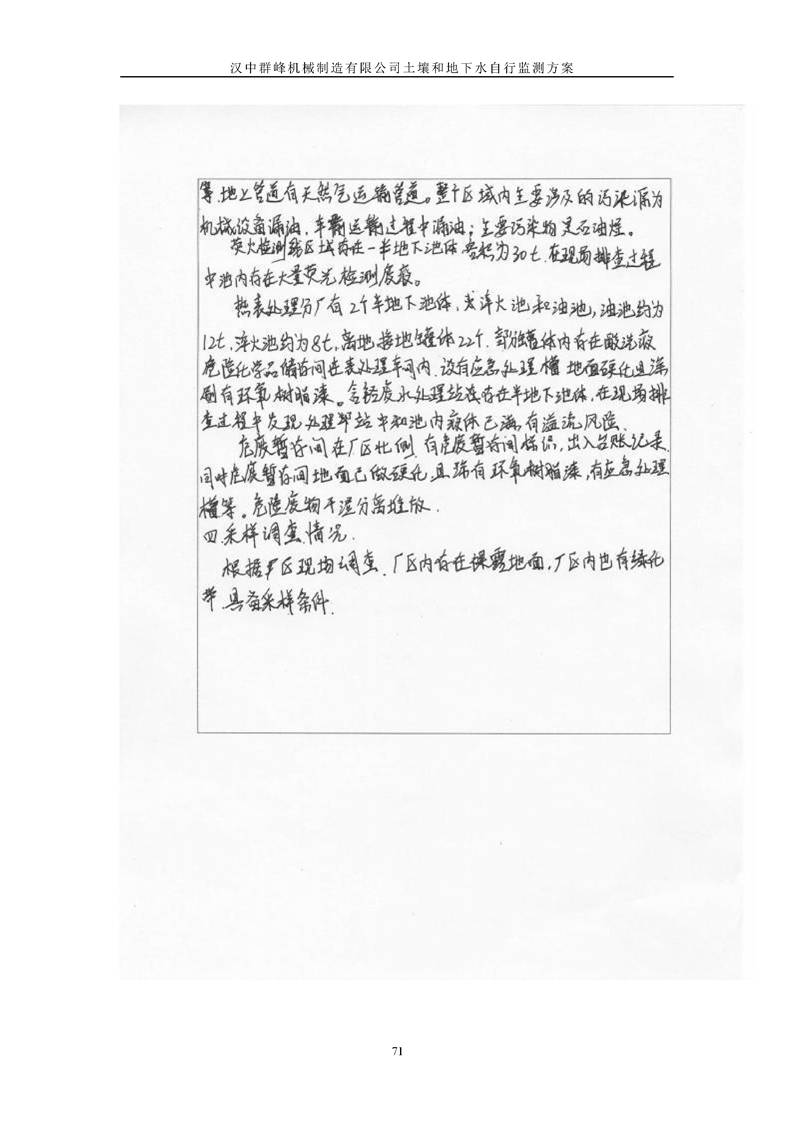 汉中群峰机械制造有限公司土壤和地下水自行监测方案
等.地上管道有天然气运输管道。整个区域内主要涉及的污染源为
机械设备漏油,车辆运输过程中漏油;主要污染物是石油烃。
荧火检测线区域存在一半地下池体 容积为30t,在现场排查过程
中池内存在大量荧光检测废液。
热表处理分厂有2个半地下池体,为淬火池和油池,油池约为
12t,淬火池约为8t,离地接地罐体22个.部分罐体内存在酸洗液
危险化学品储存间在表处理车间内.设有应急处理槽 地面硬化且涂
刷有环氧树脂漆。含铬废水处理站存在半地下池体,在现场排
查过程中发现处理站中和池内液体已满,有溢流风险.
危废暂存间在厂区北侧 有危废暂存间标识,出入台账纪录.
同时危废暂存间地面已做硬化,且涂有环氧树脂漆,有应急处理
槽等。危险废物干湿分离堆放.
四.采样调查情况.
根据厂区现场调查.厂区内存在裸露地面,厂区内也有绿化
带.具备采样条件.
71